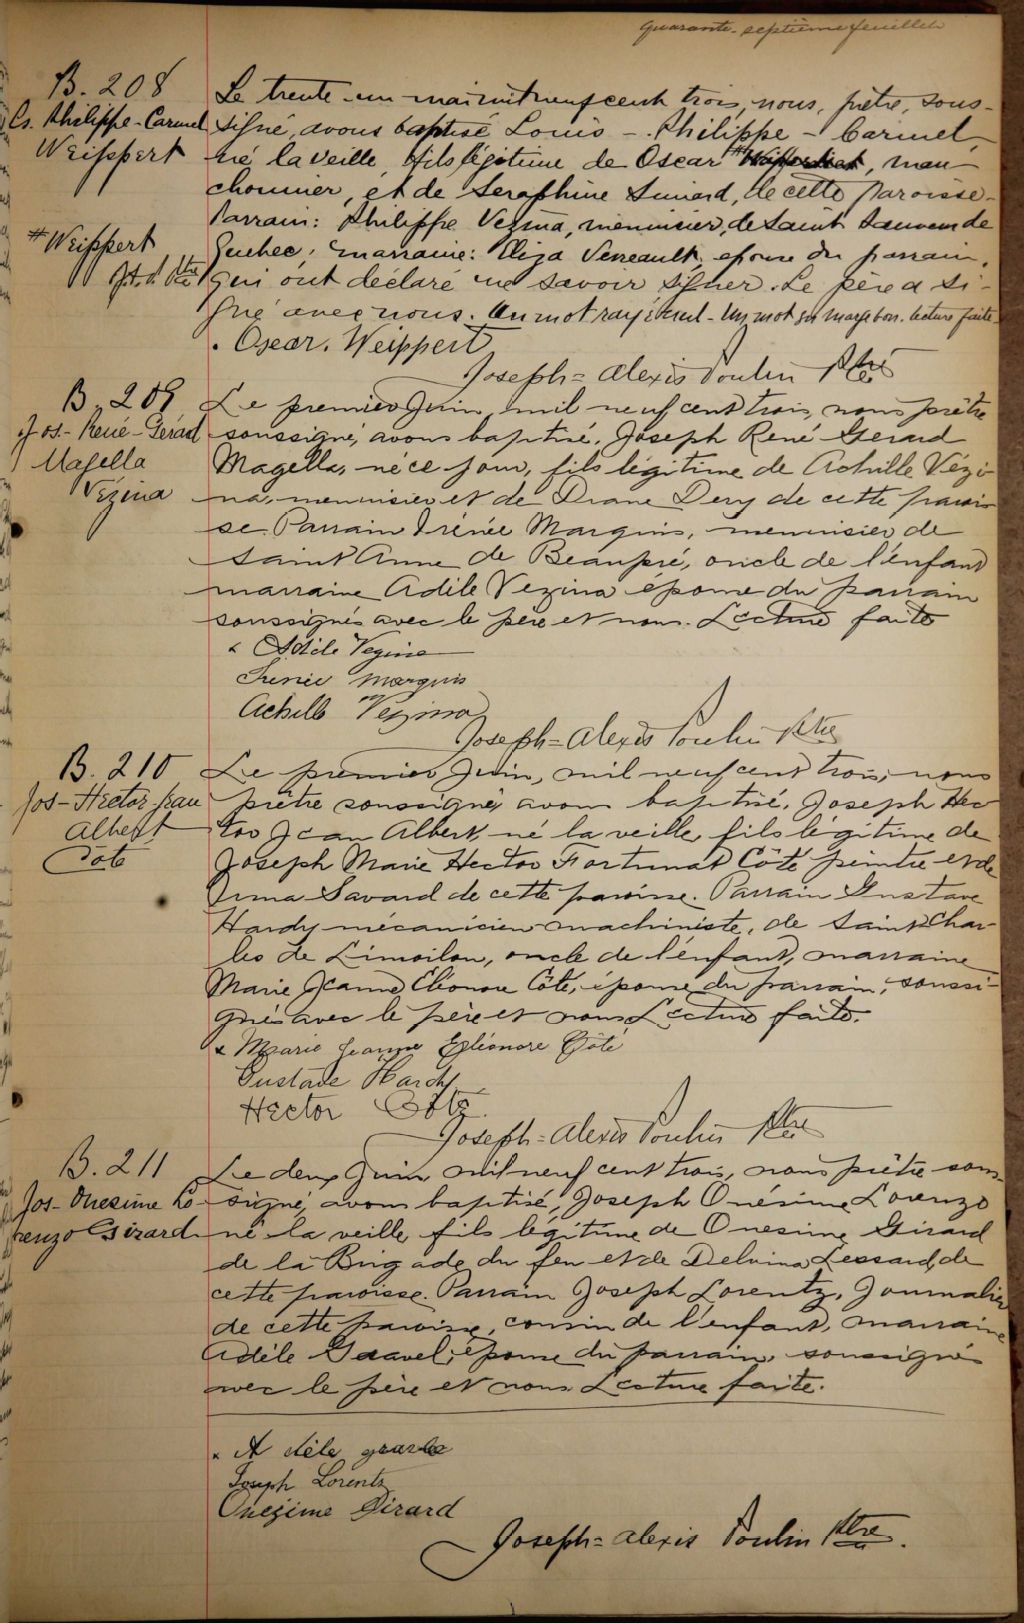 quarante-septième feuillet
B. 208
Ls. Philippe-Carmel
Weippert
Le trente-un mai mil neuf cent trois, nous, prêtre, sous-
signé, avons baptisé Louis-Philippe-Carmel,
né la veille, fils légitime de Oscar #, man
chonnier, et de Seraphine Simard, de cette paroisse.
Parrain: Philippe Vezina, menuisier, de Saint Sauveur de
# Weippert
Québec; marraine: Eliza Verreault, epouse du parrain,
qui ont déclaré ne savoir signer. Le père a si-
gné avec nous. Un mot rayé nul - Un mot en marge bon. lecture faite.
Oscar. Weippert
Joseph=Alexis Poulin Ptre
B. 209
Jos-René-Gérard
Magella
Vézina
Le premier Juin, mil neuf cent trois, nous prêtre
soussigné, avons baptisé, Joseph René Gerard
Magella, né ce jour, fils légitime de Achille Vézi-
na, menuisier et de Diane Dery de cette parois
se. Parrain Irénée Marquis, menuisier de
Saint Anne de Beaupré, oncle de l'enfant
marraine Adèle Vezina épouse du parrain
soussignés avec le père et nous. Lecture faite
x Adèle Vezina
Irenée marquis
Achille Vezina
Joseph=Alexis Poulin Ptre
B. 210
Jos-Hector Jean
Albert
Coté
Le premier Juin, mil neuf cent trois, nous
prêtre soussigné, avons baptisé, Joseph Hec
tor Jean Albert, né la veille, fils légitime de
Joseph Marie Hector Fortunat Côté peintre et de
Irma Savard de cette paroisse. Parrain Gustave
Hardy mécanicien-machiniste, de Saint Char-
les de Limoilou, oncle de l'enfant, marraine
Marie Jeanne Eléonore Côté, épouse du parrain, soussi-
gnés avec le père et nous Lecture faite.
x Marie Jeanne Egléonore Côté
Gustave Hardy
Hector Côté.
Joseph=Alexis Poulin Ptre
B. 211
Jos-Onesime Lo-
renzo Girard
Le deux Juin, mil neuf cent trois, nous prêtre sous-
signé, avons baptisé, Joseph Onésime Lorenzo
né la veille, fils légitime de Onesime Girard
de la Brigade du feu et de Delvina Lessard, de
cette paroisse. Parrain Joseph Lorentz, Journalier
de cette paroisse, cousin de l'enfant, marraine
Adèle Gravel, épouse du parrain, soussignés
avec le père et nous Lecture faite.
x Adèle
Joseph Lorentz
Onezime Girard
Joseph=Alexis Poulin Ptre.